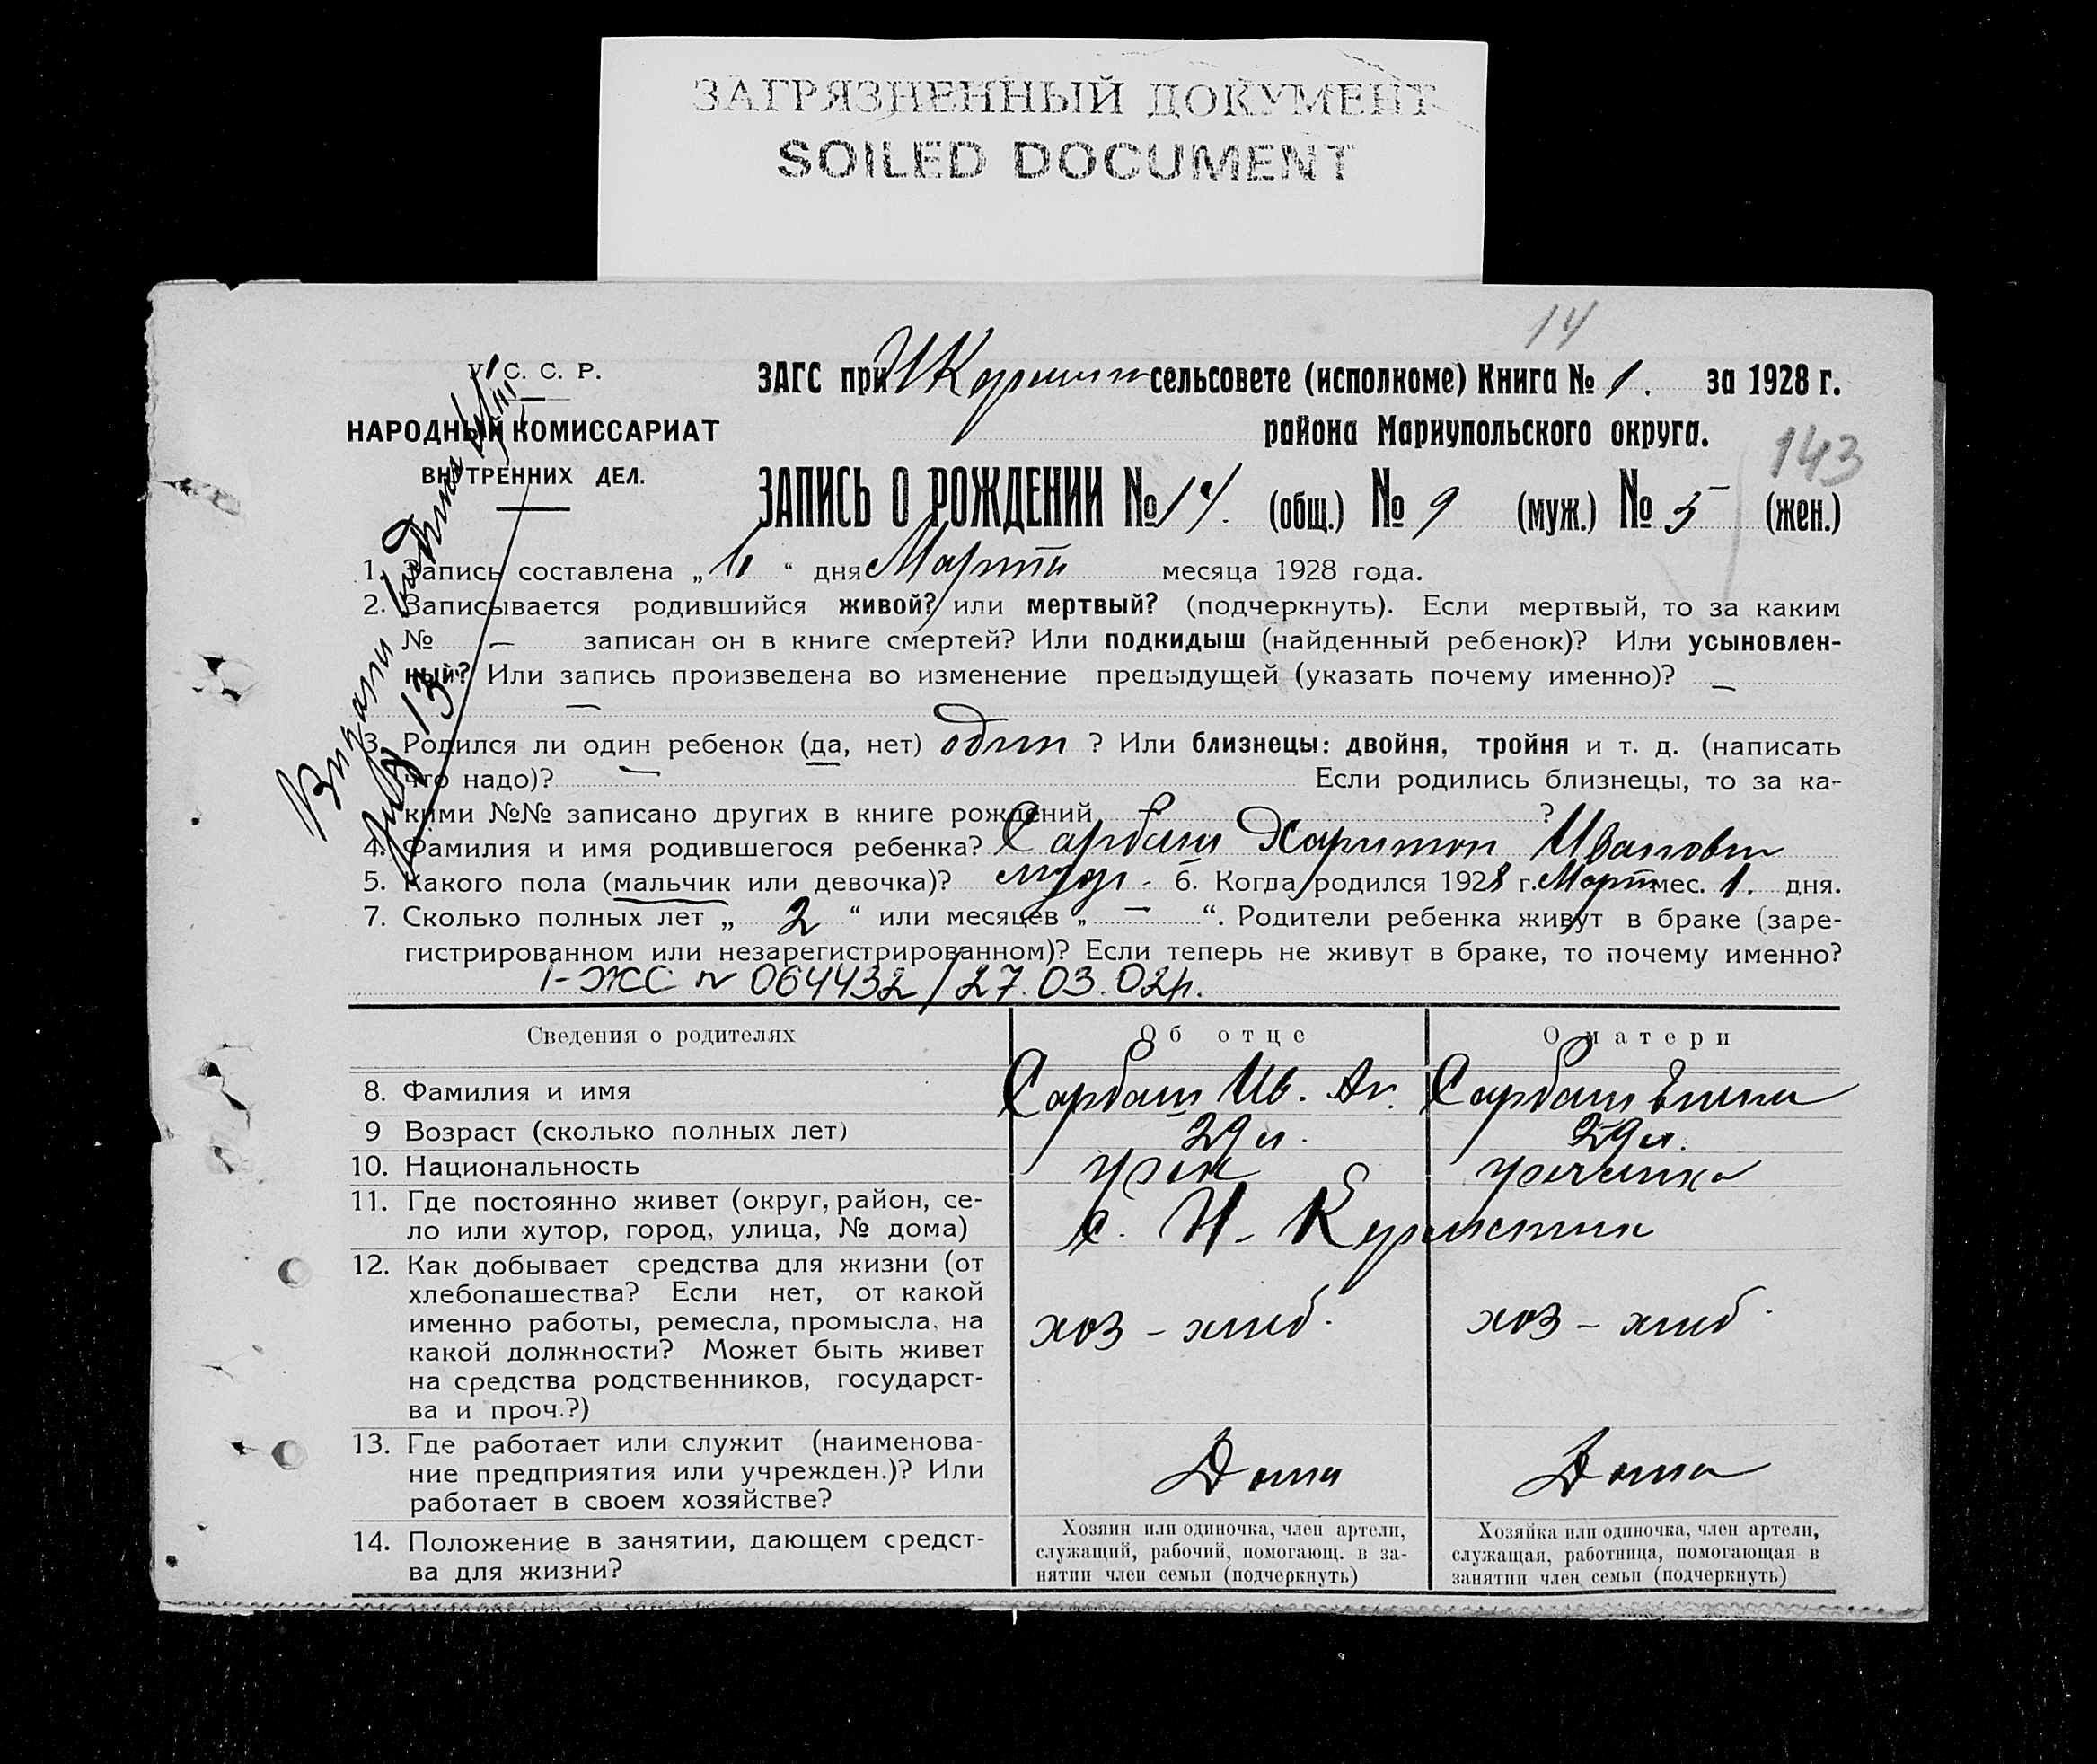 ЗАГРЯЗНЕННЫЙ ДОКУМЕНТ
SOILED DOCUMENT
14
У. С. С. Р.
НАРОДНЫЙ КОМИССАРИАТ
ВНУТРЕННИХ ДЕЛ.
ЗАГС при сельсовете (исполкоме) Книга № 1. за 1928 г.
района Мариупольского округа.
143
ЗАПИСЬ О РОЖДЕНИИ № 14. (общ.) № 9 (муж.) № 5 (жен.)
1. Запись составлена „ “ дня Марта месяца 1928 года.
2. Записывается родившийся живой? или мертвый? (подчеркнуть). Если мертвый, то за каким
№ — записан он в книге смертей? Или подкидыш (найденный ребенок)? Или усыновлен-
ный? Или запись произведена во изменение предыдущей (указать почему именно)? —
—
3. Родился ли один ребенок (да, нет) один ? Или близнецы: двойня, тройня и т. д. (написать
что надо)? — Если родились близнецы, то за ка-
кими №№ записано других в книге рождений — ?
4. Фамилия и имя родившегося ребенка? Сарбаш Харитон Иванович
5. Какого пола (мальчик или девочка)? муж. 6. Когда родился 1928 г. Март мес. 1. дня.
7. Сколько полных лет „ 2 “ или месяцев „ — “. Родители ребенка живут в браке (заре-
гистрированном или незарегистрированном)? Если теперь не живут в браке, то почему именно?
I-ЖС № 064432 / 27.03.02р.
Сведения о родителях Об отце О матери
8. Фамилия и имя Сарбаш Ив. Сарбаш
9 Возраст (сколько полных лет) 29 л. 29 л.
10. Национальность грек гречанка
11. Где постоянно живет (округ, район, се-
ло или хутор, город, улица, № дома) с. Н-
12. Как добывает средства для жизни (от
хлебопашества? Если нет, от какой
именно работы, ремесла, промысла, на
какой должности? Может быть живет
на средства родственников, государст-
ва и проч.?)
хоз – хлеб. хоз – хлеб.
13. Где работает или служит (наименова-
ние предприятия или учрежден.)? Или
работает в своем хозяйстве?
Дома Дома
14. Положение в занятии, дающем средст-
ва для жизни?
Хозяин или одиночка, член артели,
служащий, рабочий, помогающ. в за-
нятии член семьи (подчеркнуть)
Хозяйка или одиночка, член артели,
служащая, работница, помогающая в
занятии член семьи (подчеркнуть)